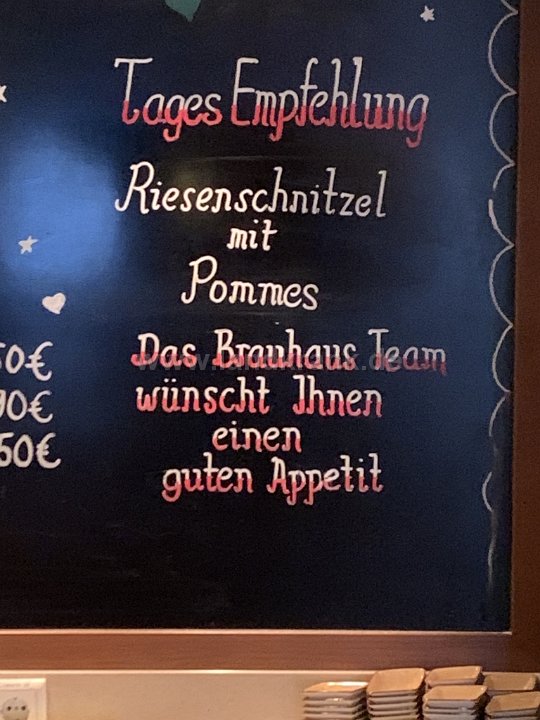 Tages Empfehlung
Riesenschnitzel
mit
Pommes
Das Brauhaus Team
wünscht Ihnen
einen
guten Appetit
50€
90€
,50€